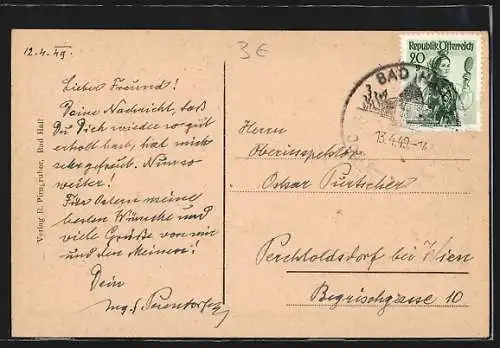 12.4.49.
3€
Lieber Freund!
Deine Nachricht, daß
Du Dich wieder so gut
erholt hast, hat mich
sehr gefreut. Nur so
weiter!
Für Ostern meine
besten Wünsche und
viele Grüße von mir
und den Meinen!
Dein
Verlag R. Pirngruber, Bad Hall
Republik Österreich
20
BAD HALL
13.4.49
Herrn
Oberinspektor
Oskar Purtscher
Perchtoldsdorf bei Wien
Begrischgasse 10